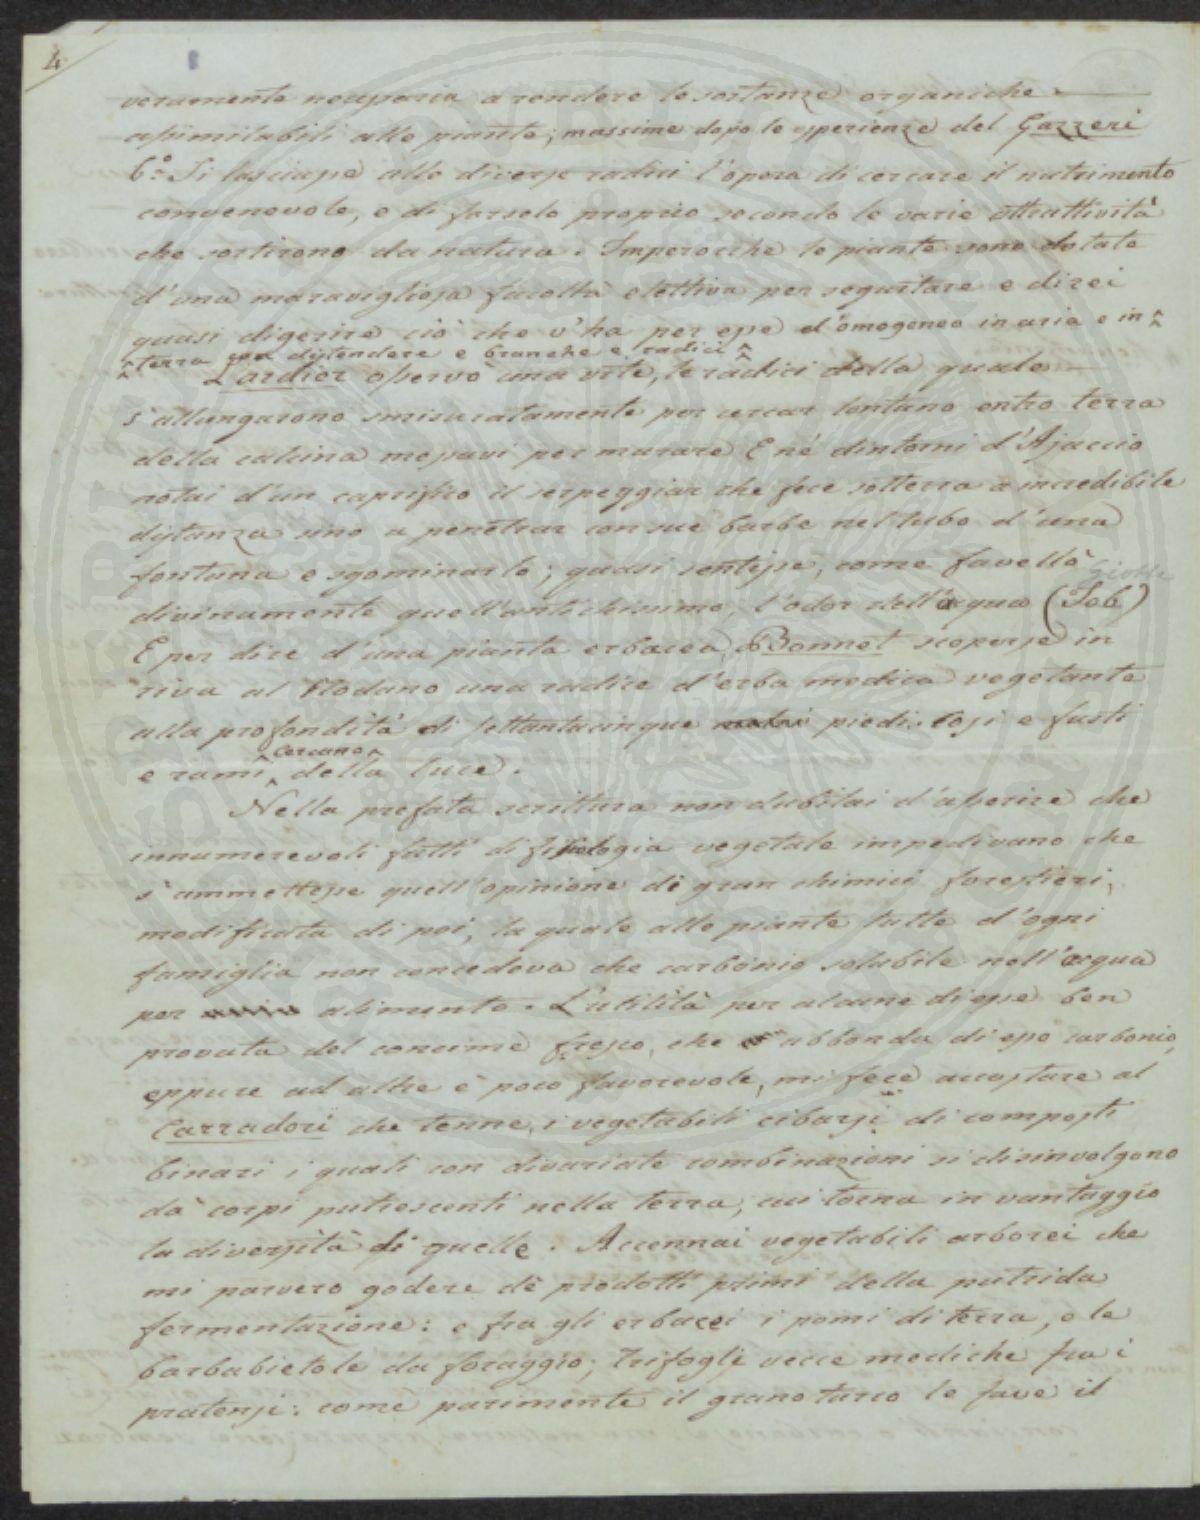 4
veramente necessaria a rendere le sostanze organiche
assimilabili alle piante; massime dopo le esperienze del Gazzeri
6.º Si lasciasse alle diverse radici l'opera di cercare il nutrimento
convenevole, e di farselo proprio secondo le varie attrattività
che sortirono da natura. Imperocchè le piante sono dotate
d'una maravigliosa facoltà elettiva per seguitare e direi
quasi digerire ciò che v'ha per esse d'omogeneo in aria e in
terra per distendere e branche e radici
Lardier osservò una vite, le radici della quale
s'allungarono smisuratamente per cercar lontano entro terra
della calcina messavi per murare E né dintorni d'Ajaccio
notai d'un caprifico il serpeggiar che fece sotterra a incredibile
distanza sino a penetrar con sue barbe nel tubo d'una
fontana e sgominarlo; quasi sentisse, come favellò
divinamente quell'antichissimo, l'odor dell'acqua (Job)
Giobbe
E per dire d'una pianta erbacea, Bonnet scoperse in
riva al Rodano una radice d'erba medica vegetante
alla profondità di settantacinque piedi. Così e fusti
e rami cercano della luce.
Nella prefata scrittura non dubitai d'asserire che
innumerevoli fatti di fisiologia vegetale impedivano che
s'ammettesse quell'opinione dè gran chimici forestieri,
modificata di poi, la quale alle piante tutte d'ogni
famiglia non concedeva che carbonio solubile nell'acqua
per alimento. L'utilità per alcune di esse ben
provata del concime fresco, che abbonda di esso carbonio,
eppure ad altre è poco favorevole, mi fece accostare al
Carradori che tenne, i vegetabili cibarsi di composti
binari i quali con divariate combinazioni si disinvolgono
dà corpi putrescenti nella terra, cui torna in vantaggio
la diversità di quelle. Accennai vegetabili arborei che
mi parvero godere dè prodotti primi della putrida
fermentazione: e fra gli erbacei i pomi di terra, e le
barbabietole da foraggio; trifogli vecce mediche fra i
pratensi: come parimente il grano turco le fave il